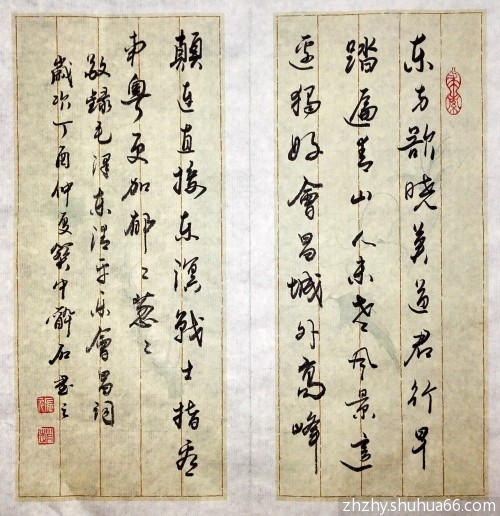 东方欲晓莫道君行早
踏遍青山人未老风景這
边獨好會昌城外高峰
顛连直接东溟戰士指看
南粤更加郁々葱々
敬録毛澤东清平乐會昌词
歲次丁酉仲夏 中醉石书之
zhzhy.shuhua66.com